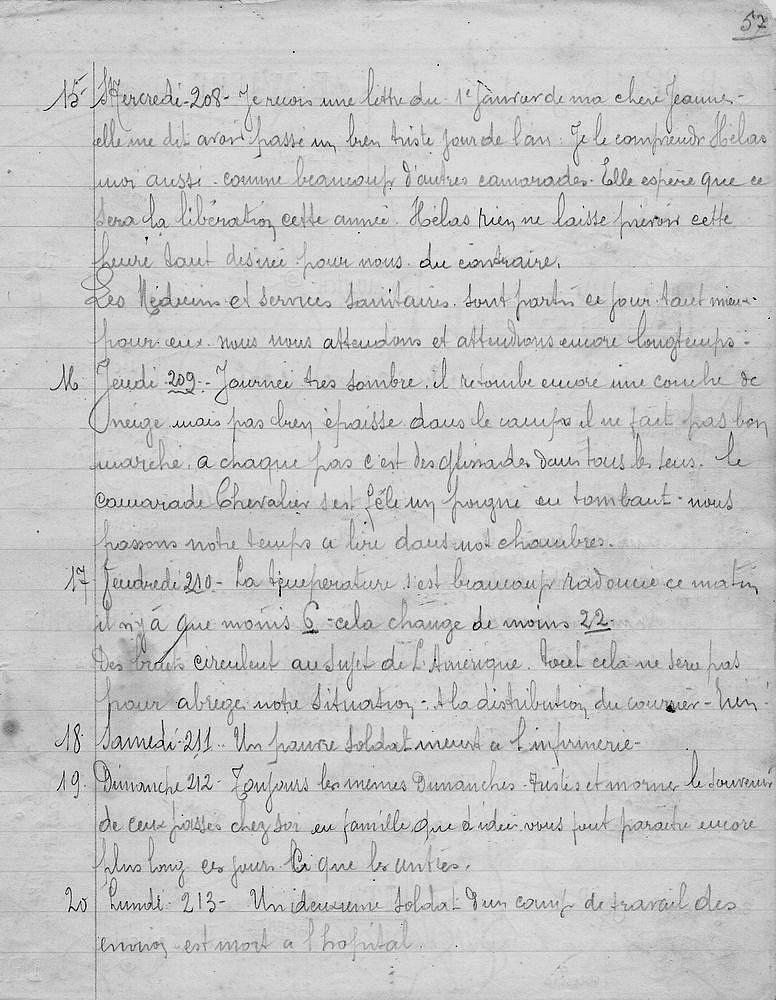 57
15 Mercredi-208- Je reçois une lettre du 1e Janvier de ma chere Jeanne-
elle me dit avoir passé un bien triste jour de l'an. Je le comprends Hélas
moi aussi. comme beaucoup d'autres camarades. Elle espère que ce
sera la libération cette année. Hélas rien ne laisse prévoir cette
heure tant desirée pour nous. du contraire.
Les Médecins et services sanitaires. sont partis ce jour. tant mieux
pour eux. nous nous attendons et attendrons encore longtemps-
16 Jeudi 209- Journée très sombre. il retombe encore une couche de
neige. mais pas bien épaisse. dans le camp il ne fait pas bon
marcher. a chaque pas c'est des glissades dans tous les sens. le
camarade Chevalier s'est fêlé un poigné en tombant. nous
passons notre temps a lire dans nos chambres.
17 Vendredi 210- La température s'est beaucoup radoucie ce matin
il n'y a que moins 6-cela change de moins 22-
Des bruits circulent au sujet de L'Amérique. tout cela ne sere pas
pour abrége notre situation- A la distribution du courrier- rien!
18 Samedi-211.. Un pauvre Soldat meurt a l'infirmerie-
19. Dimanche 212- Toujours les mêmes Dimanches. tristes et mornes le souvenir
de ceux passés chez soi en famille que d'idée vous font paraitre encore
plus long ces jours ci que les autres.
20 Lundi 213- Un deuxieme Soldat d'un camp de travail des
environ est mort a l'hopital.